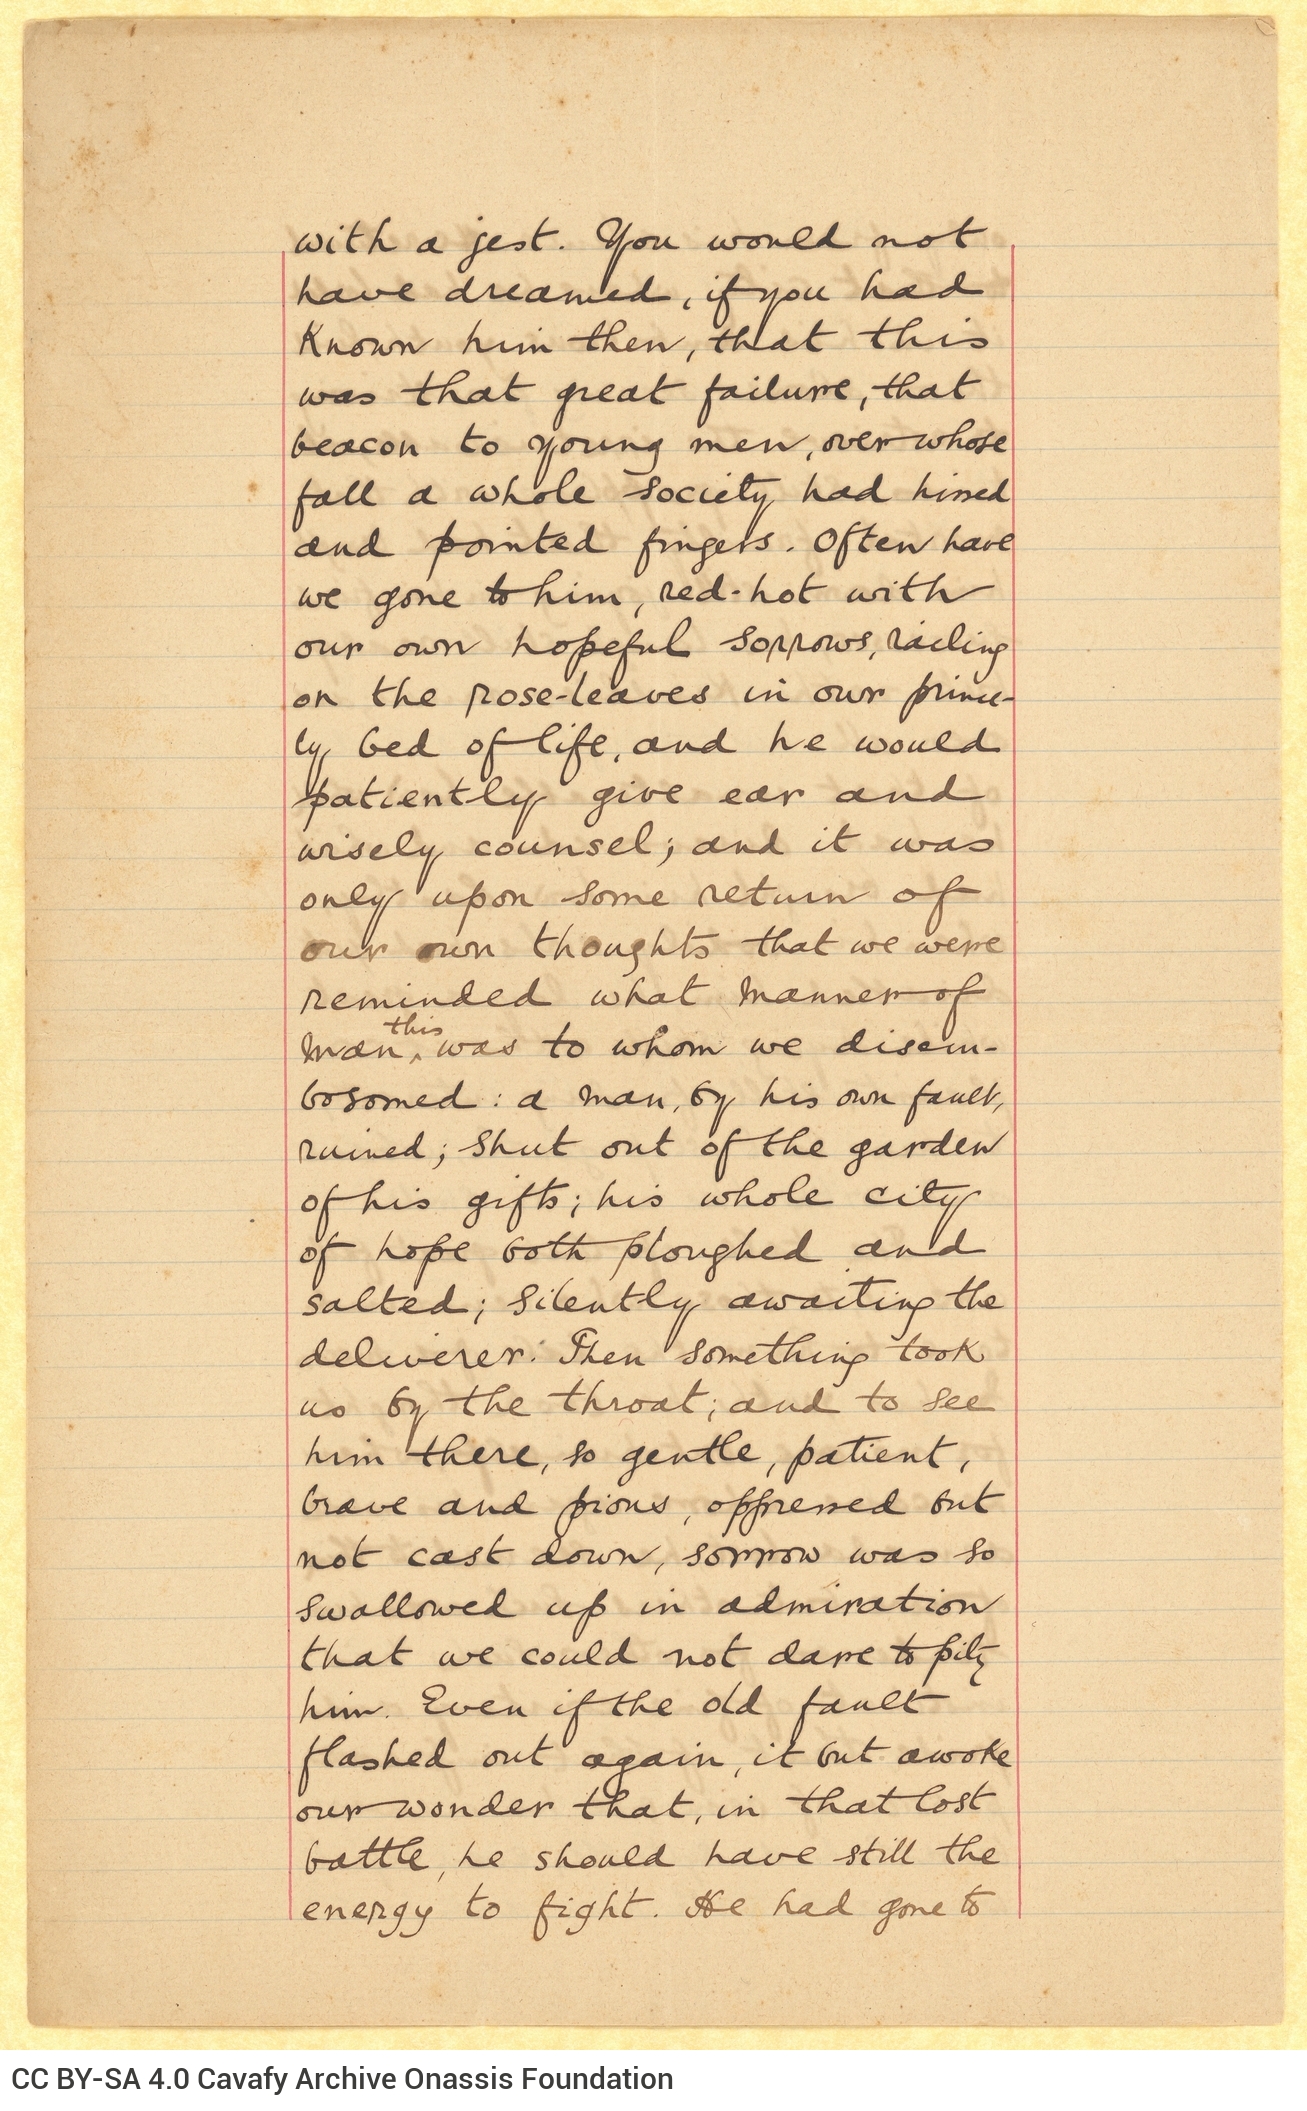 with a jest. You would not
have dreamed, if you had
known him then, that this
was that great failure, that
beacon to young men, over whose
fall a whole society had hissed
and pointed fingers. Often have
we gone to him, red-hot with
our own hopeful sorrows, railing
on the rose-leaves in our prince-
ly bed of life, and he would
patiently give ear and
wisely counsel; and it was
only upon some return of
our own thoughts that we were
reminded what manner of
man this was to whom we disem-
bosomed: a man, by his own fault,
ruined; shut out of the garden
of his gifts; his whole city
of hope both ploughed and
salted; silently awaiting the
deliverer. Then something took
us by the throat; and to see
him there, so gentle, patient,
brave and pious, oppressed but
not cast down, sorrow was so
swallowed up in admiration
that we could not dare to pity
him. Even if the old fault
flashed out again, it but awoke
our wonder that, in that lost
battle, he should have still the
energy to fight. He had gone to
CC BY-SA 4.0 Cavafy Archive Onassis Foundation